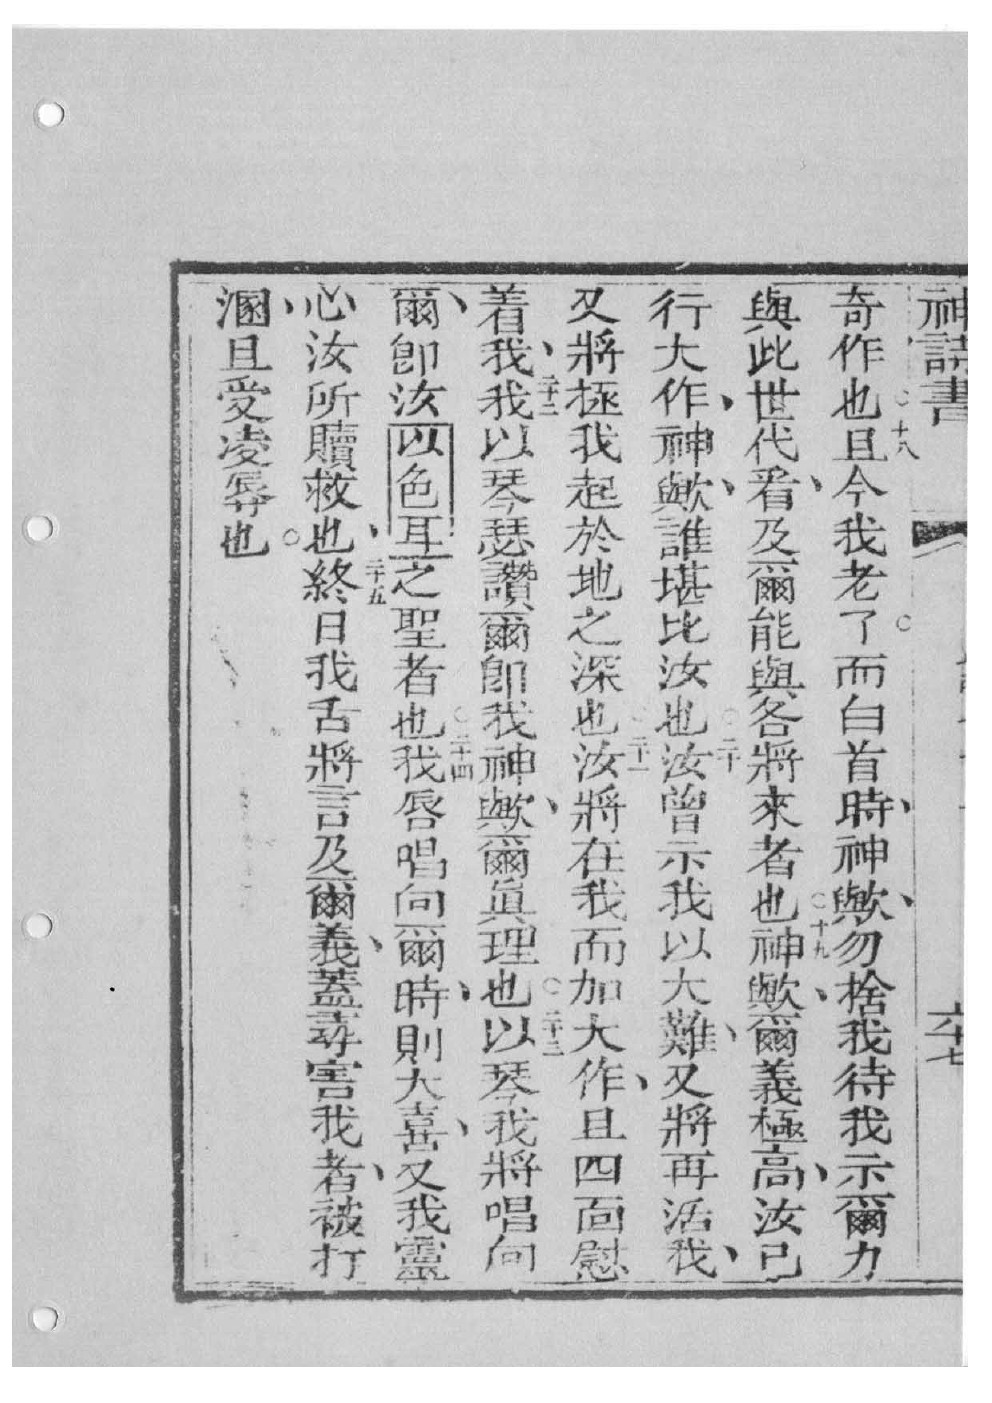 神詩書
六十七
奇作也○十八且今我老了而白首時、神歟、勿捨我待我示爾力
與此世代看、及爾能與各將來者也○十九神歟、爾義極高、汝已
行大作、神歟、誰堪比汝也○二十汝曾示我以大難、又將再活我、
又將拯我起於地之深也○二十一汝將在我而加大作、且四面慰
着我、二十二我以琴瑟讚爾卽我神歟、爾眞理也○二十三以琴我將唱向
爾、卽汝以色耳之聖者也○二十四我唇唱向爾時、則大喜、又我靈
心汝所贖救也、二十五終日我舌將言及爾義、蓋尋害我者、被打
溷、且受凌辱也○